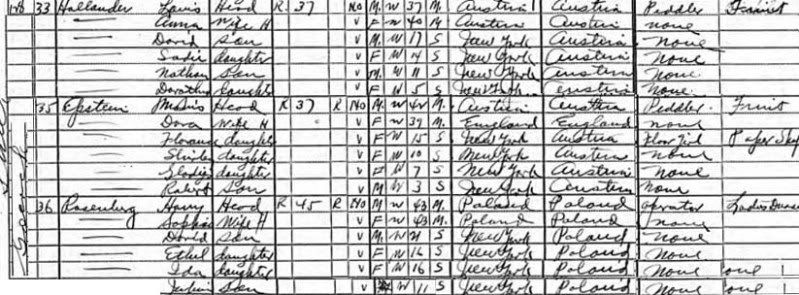 33 Hollander Louis Head R 37 NO M W 37 M Austria Austria Peddler Fruit
Anna Wife H V F W 40 M Austria Austria none
David Son V M W 17 S New York Austria None
Sadie daughter V F W 14 S New York Austria None
Nathan Son V M W 11 S New York Austria None
Dorothy daughter V F W 5 S New York Austria None
35 Epstein Head R 37 R NO M W 42 M Austria Austria Peddler Fruit
Dora Wife H V F W 39 M England England none
Florance daughter V F W 15 S New York Austria Floor Girl Paper
Shirley daughter V F W 10 S New York Austria None
Gladys daughter V F W 7 S New York Austria None
Robert Son V M W 3 S New York Austria None
36 Rosenberg Harry Head R 45 R NO M W 43 M Poland Poland operator Ladies
Sophie Wife H V F W 43 M Poland Poland none
David Son V M W 21 S New York Poland None
Ethel daughter V F W 16 S New York Poland None
Ida daughter V F W 16 S New York Poland None
Julius Son V W 11 S New York Poland None